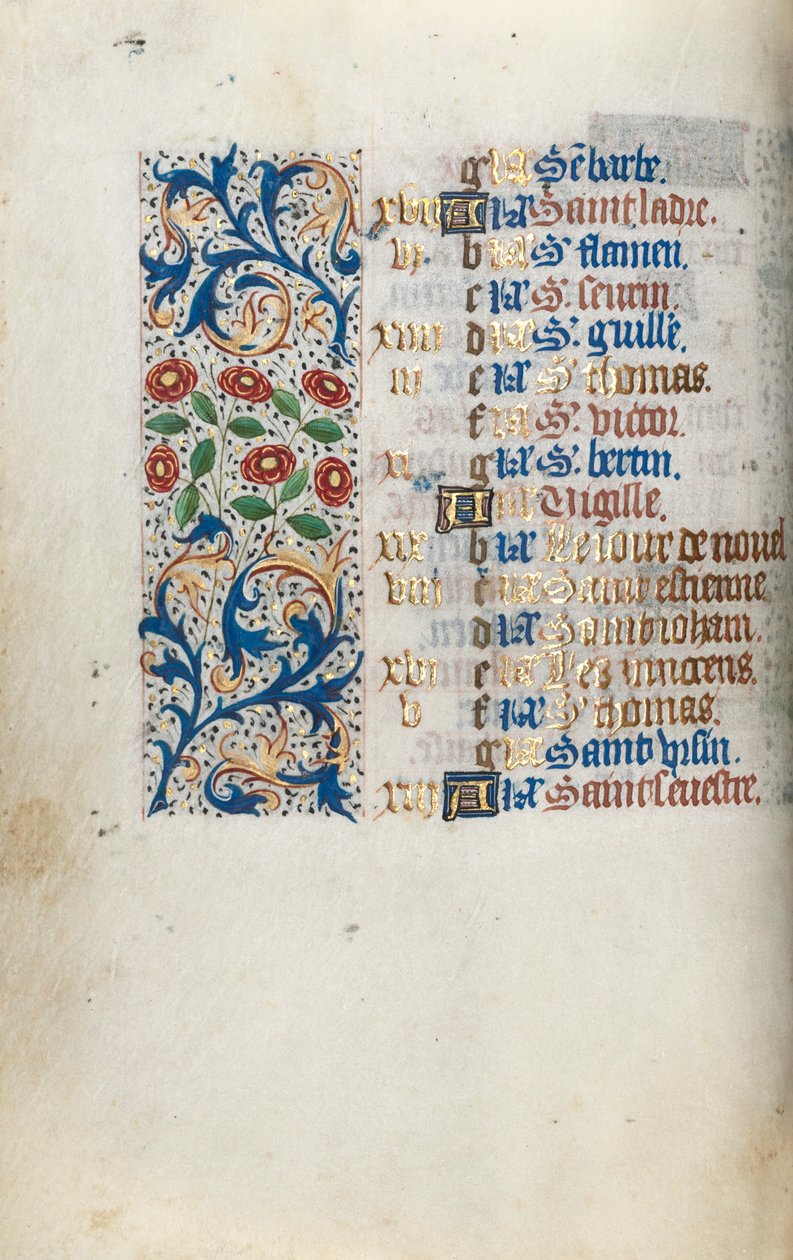 g kł Sᵉ barbe.
xviii A kł Saint ladre.
vi. b kł Sᵗ flamen.
c kł Sᵗ. seurin.
xiiii d kł Sᵗ. guille.
iii e kł Sᵗ thomas.
f kł Sᵗ. victor.
xi g kł Sᵗ. bertin.
A kł Vigille.
xix b kł Le iour de nouel
viii c kł Saint estienne
d kł Saint iohan.
xvi e kł Les innocens.
v f kł Sᵗ thomas.
g kł Saint ursin.
xiii A kł Saint seuestre.